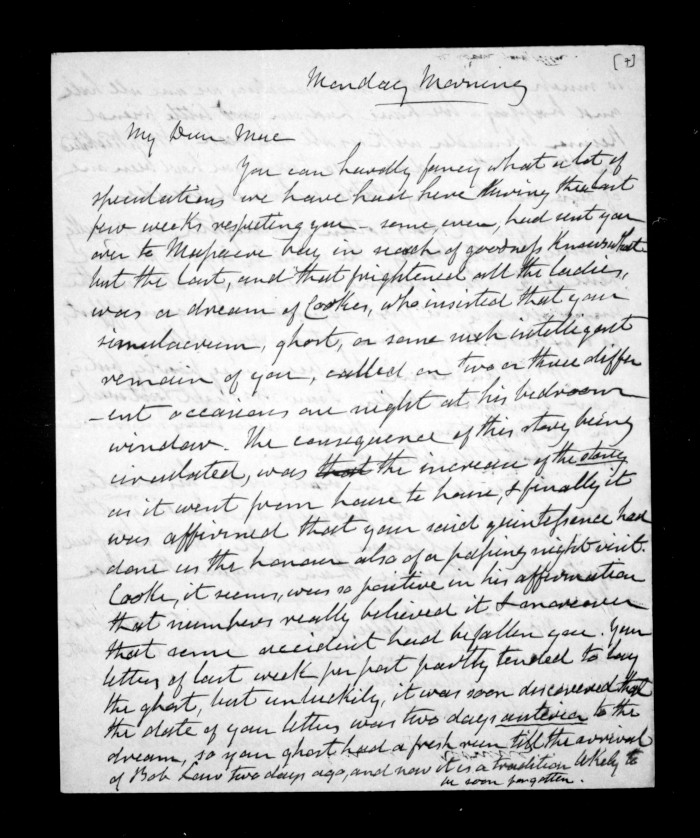 [4]
Monday Morning
My Dear Mac
You can hardly fancy what a lot of
speculations we have had here during the last
few weeks respecting you - some, even, had sent you
over to Massacre bay in search of goodness knows what
but the last, and that frightened all the ladies,
was a dream of Cookes, who insisted that your
simulacrum, ghost, or some such intelligent
remain of you, called on two or three differ
-ent occasions one night at his bedroom
window. The consequence of this story being
circulated, was that the increase of the story
as it went from house to house, & finally it
was affirmed that your said quintessence had
done us the honour also of a passing night visit.
Cooke, it seems, was so positive in his affirmation
that numbers really believed it & moreover
that some accident had befallen you. Your
letters of last week per post partly tended to lay
the ghost, but unluckily, it was soon discovered that
the date of your letters was two days anterior to the
dream, so your ghost had a fresh run till the arrival
of Bob Law two days ago, and now it is a tradition likely to
be soon forgotten.